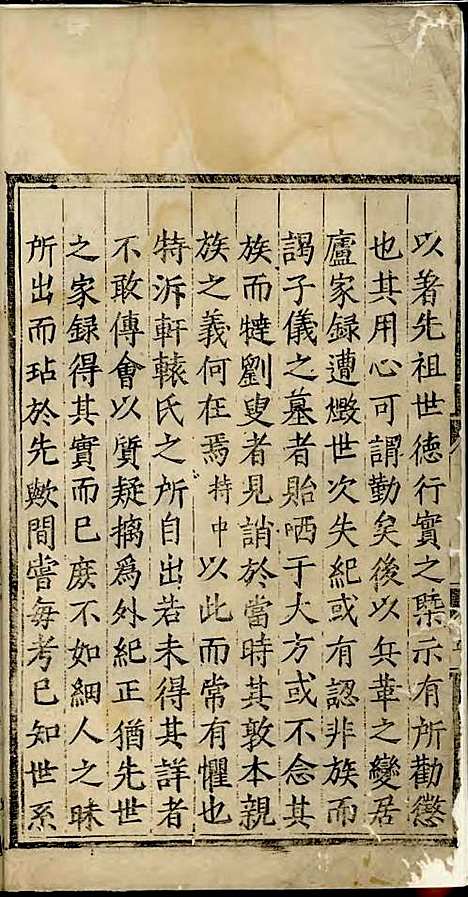 以著先祖世德行實之槩示有所勸懲
也其用心可謂勤矣後以兵革之變居
廬家録遭燬世次失紀或有認非族而
謁子儀之墓者貽哂于大方或不念其
族而犍劉叟者見誚於當時其敦本親
族之義何在焉持中以此而常有懼也
特泝軒轅氏之所自出若未得其詳者
不敢傳會以質疑摛為外紀正猶先世
之家録得其實而已庶不如細人之昧
所出而玷於先歟間嘗每考已知世系